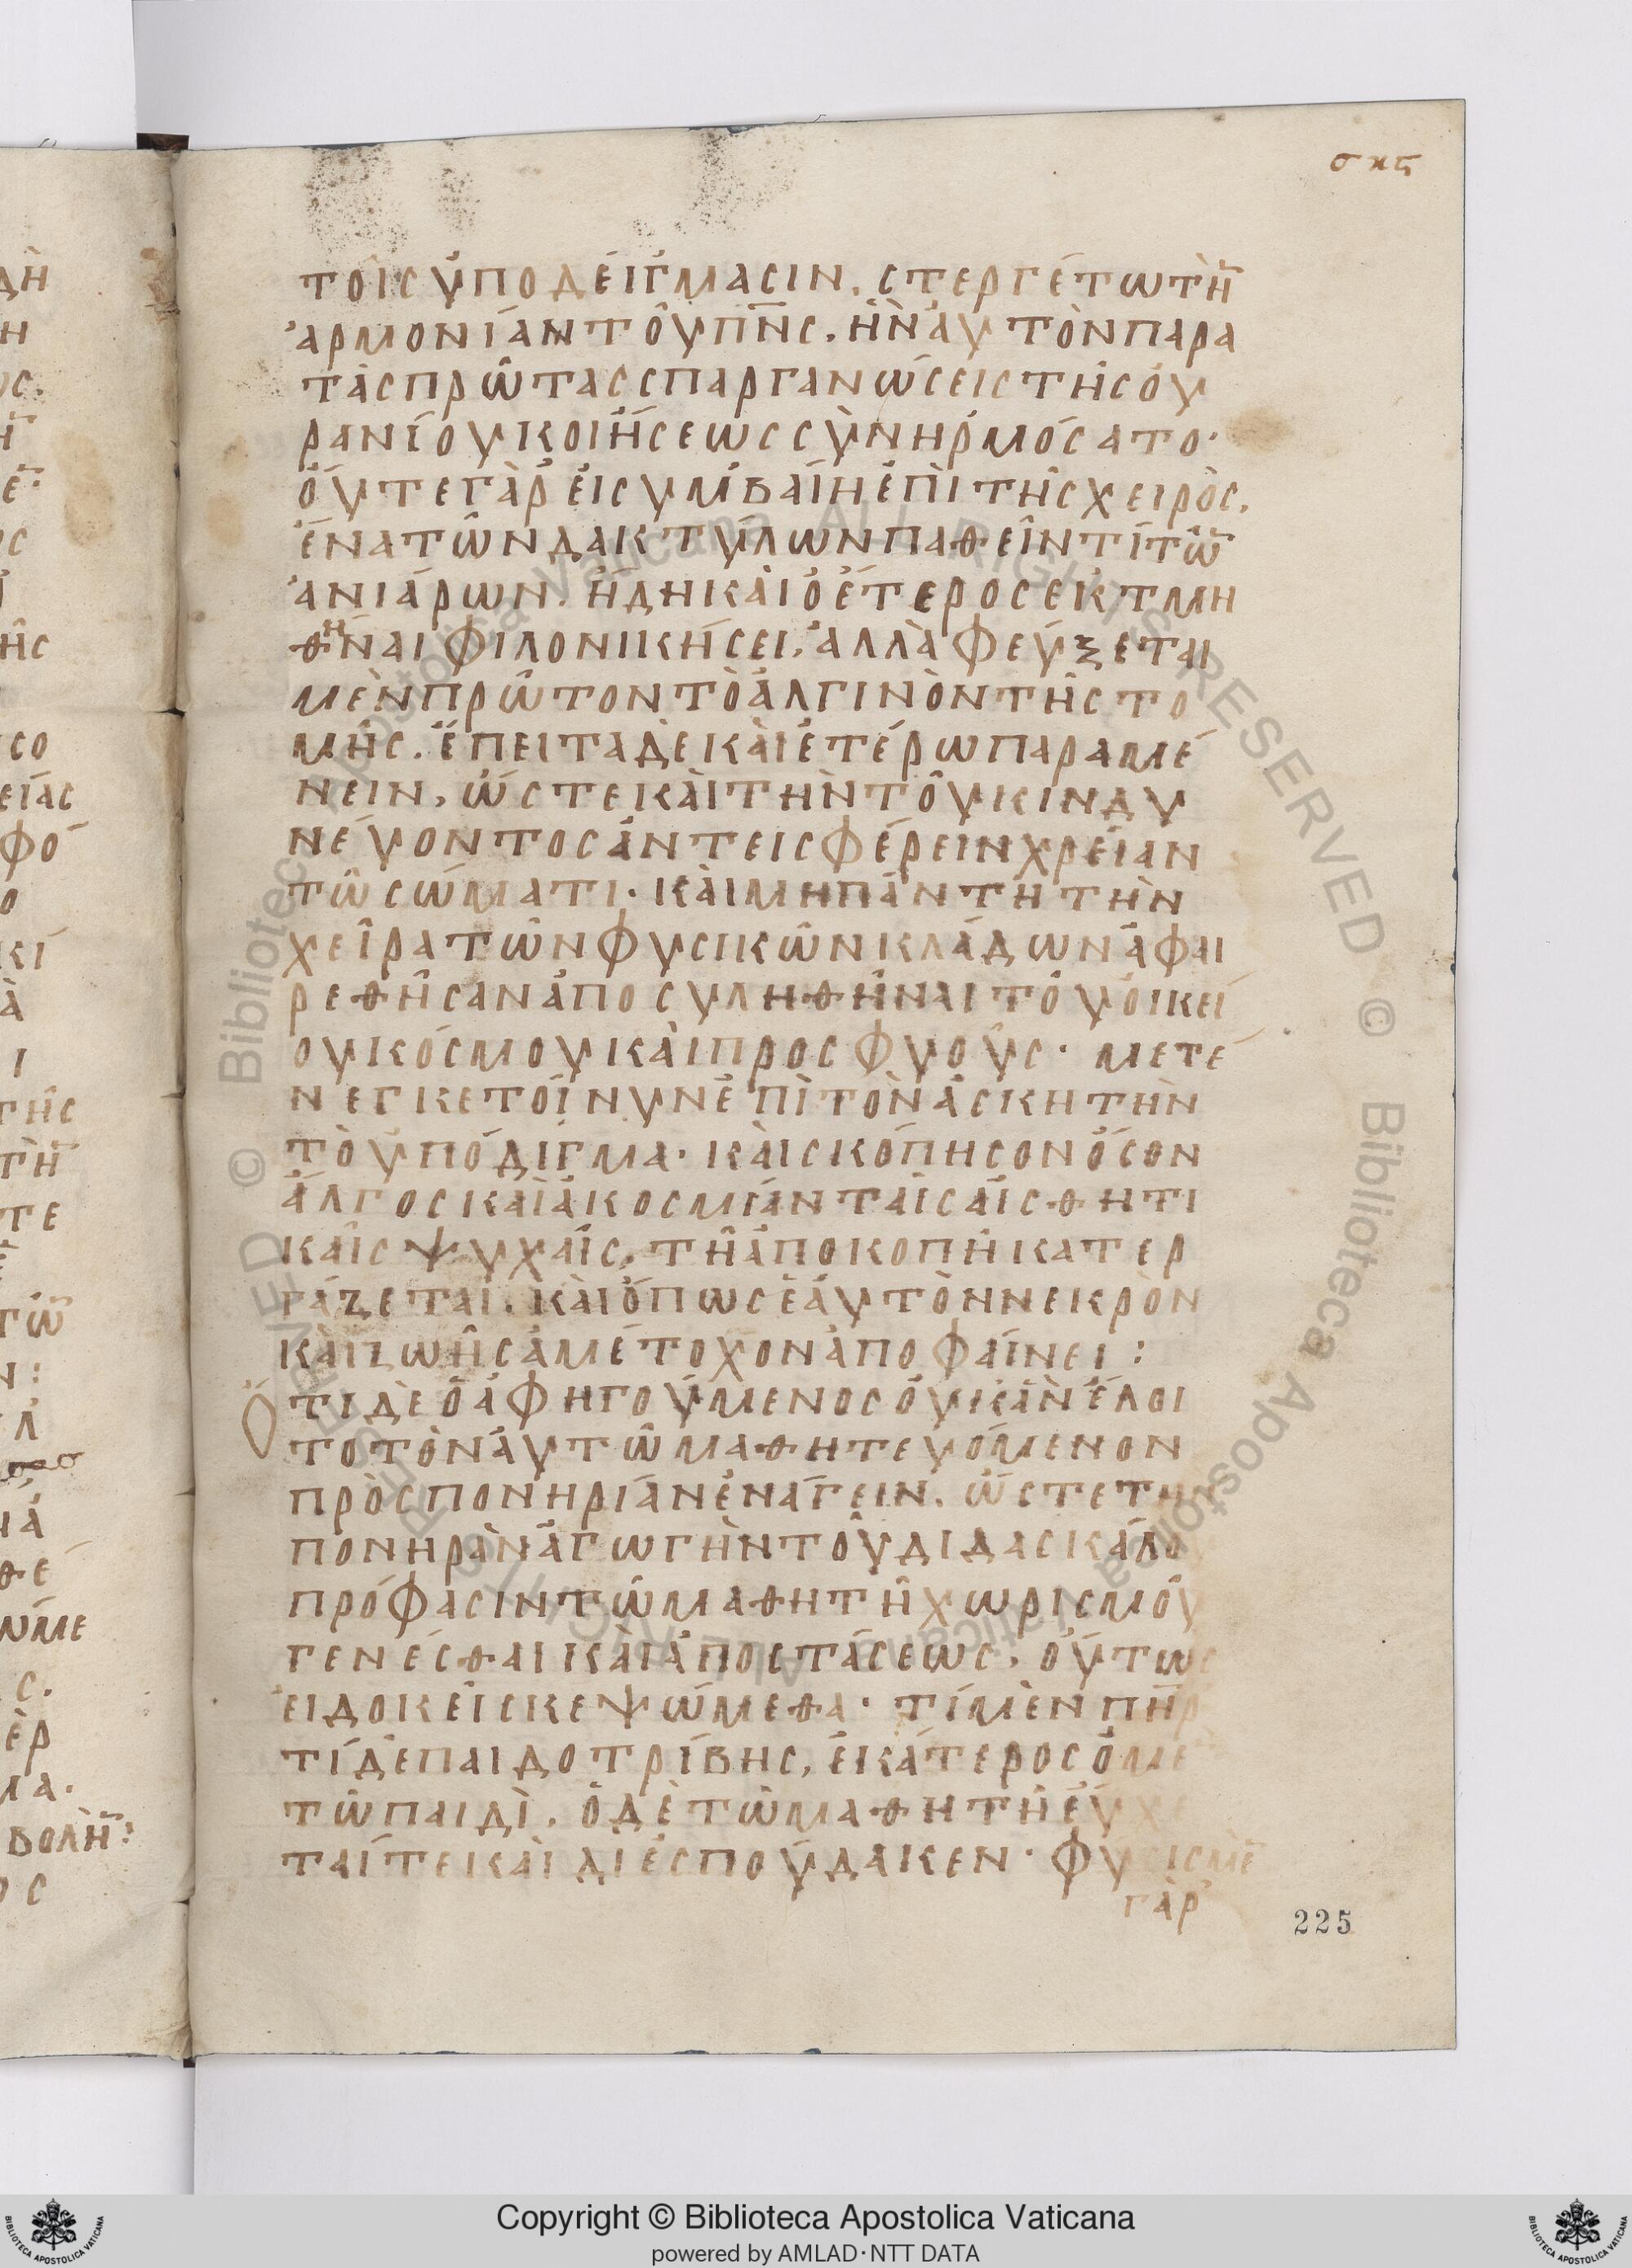 σκϛ
τοῖς ὑποδείγμασιν. στεργέτω τὴν̅
ἁρμονίαν τοῦ πν̅ς. ἣν ἀυτὸν παρα
τὰς πρώτας σπαργανώσεις τῆς ὀυ
ρανίου κοιήσεως συνηρμόσατο·
ὄυτε γὰρ ἐι συμβαίη ἐπὶ τῆς χειρὸς,
ἕνα τῶν δακτύλων παθεῖν τί τῶ̅
ἀνιάρων. ἤδη καὶ ὁ ἕτερος ἐκτμη
θῆναι φιλονικήσει. ἀλλὰ φεύξεται
μὲν πρῶτον τὸ ἀλγινὸν τῆς το
μῆς. ἔπειτα δὲ καὶ ἑτέρω παραμέ
νειν, ὥστε καὶ τὴν τοῦ κινδυ
νέυοντος ἀντεισφέρειν χρείαν
τῶ σώματι· καὶ μη πάντη τὴν
χεῖρα τῶν φυσικῶν κλάδων ἀφαι
ρεθῆσαν ἀποσυληθῆναι τοῦ ὀικεί
ου κόσμου καὶ προσφυοῦς· μετέ
νεγκε τοίνυν ἐπὶ τὸν ἀσκητὴν
τὸ ὑπόδιγμα· καὶ σκόπησον ὅσον
ἄλγος καὶ ἀκοσμίαν ταῖς αἰσθητι
καῖς ψυχαῖς, τῆ ἀποκοπῆ κατερ
γάζεται. καὶ ὅπως ἑἀυτὸν νεκρὸν
καὶ ζωῆς ἀμέτοχον ἀποφαίνει:
Ὅτι δὲ ὁ ἀφηγούμενος ὀυκ ἂν ἕλοι
το τὸν ἀυτῶ μαθητευόμενον
πρὸς πονηρίαν ἐνάγειν. ὥστε τὴν
πονηρὰν ἀγωγὴν τοῦ διδασκάλου
πρόφασιν τῶ μαθητῆ χωρισμοῦ
γενέσθαι καὶ ἀποστάσεως, ὅυτως
ει δοκεῖ σκεψώμεθα· τί μὲν πη̅ρ
τί δὲ παιδοτρίβης, ἑκάτερος ὁ με
τῶ παιδὶ. ὁ δὲ τῶ μαθητῆ ἐύχε
ταί τε καὶ διεσπούδακεν· φύσις μὲ̅
γὰρ
225
Copyright © Biblioteca Apostolica Vaticana
powered by AMLAD·NTT DATA